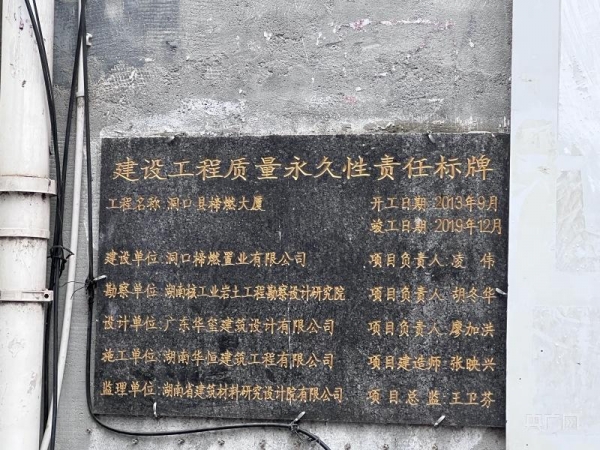 建设工程质量永久性责任标牌
工程名称:洞口县榜燃大厦 开工日期:2013年9月
竣工日期:2019年12月
建设单位:洞口榜燃置业有限公司 项目负责人:凌 伟
勘察单位:湖南核工业岩土工程勘察设计研究院 项目负责人:胡冬华
设计单位:广东华玺建筑设计有限公司 项目负责人:廖加洪
施工单位:湖南华恒建筑工程有限公司 项目建造师:张映兴
监理单位:湖南省建筑材料研究设计院有限公司 项目总监:王卫芬
央广网